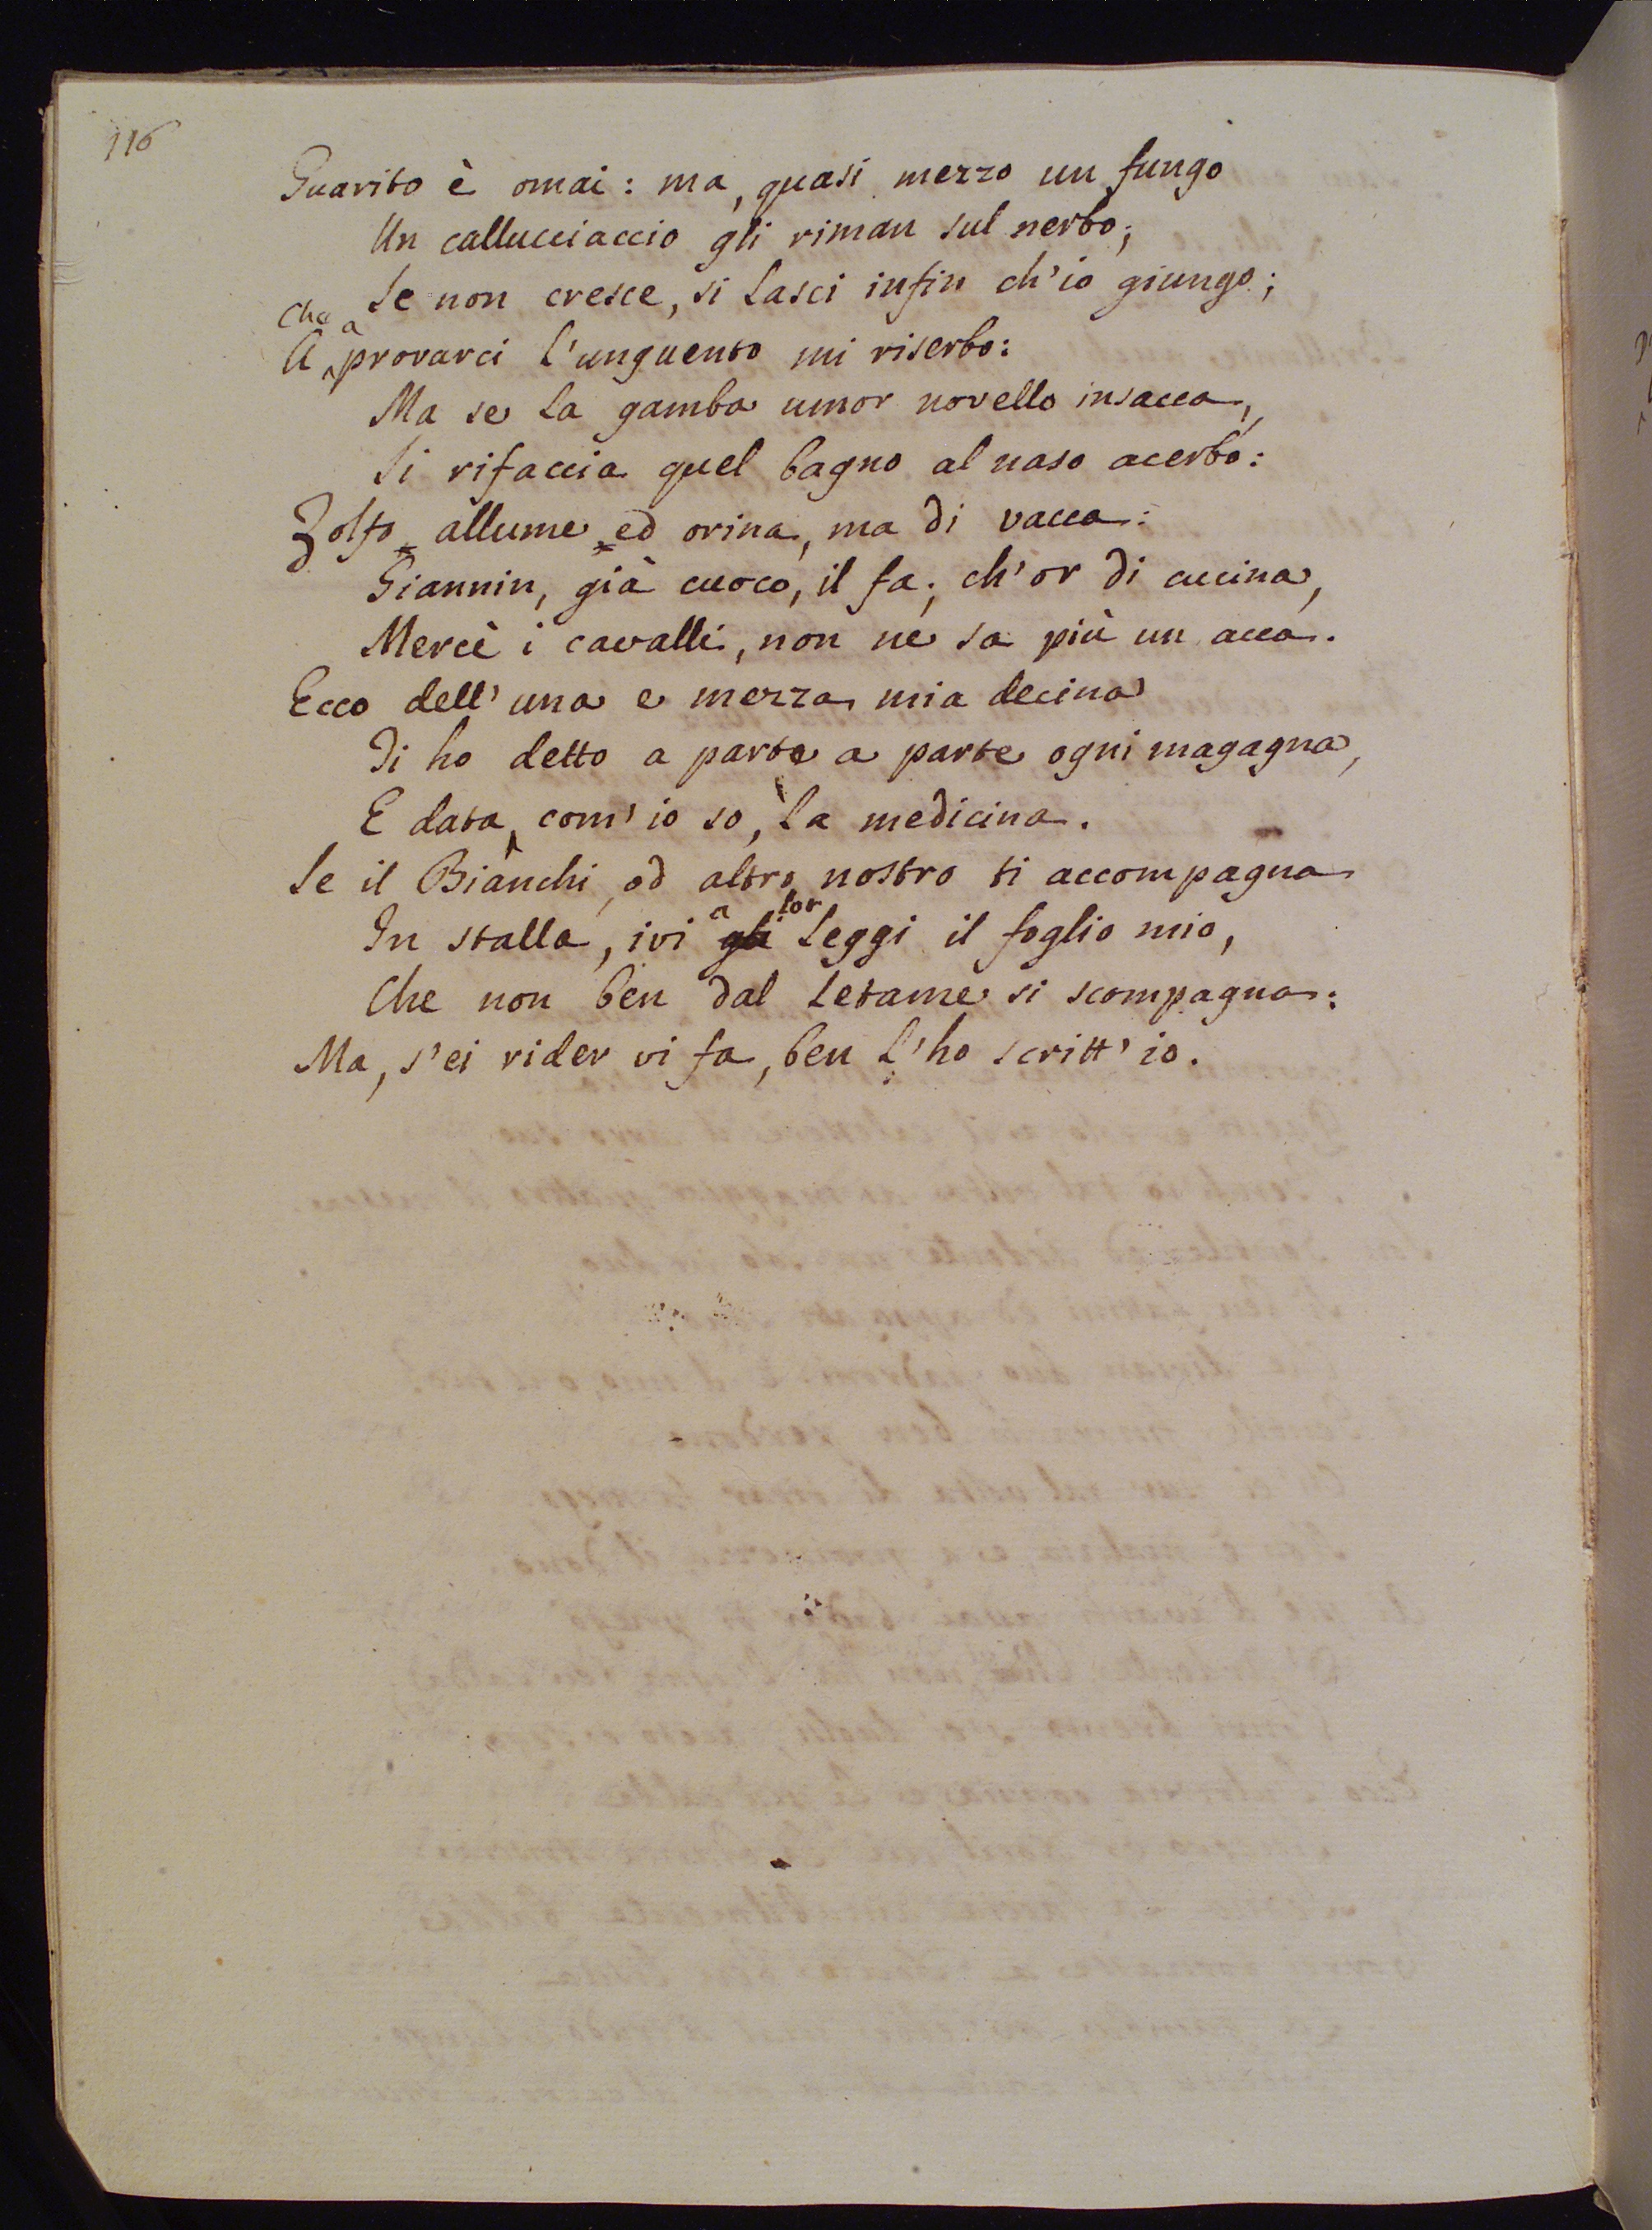 116
Guarito è omai: ma, quasi mezzo un fungo
Un callucciaccio gli riman sul nerbo;
Se non cresce, si lasci infin ch'io giungo;
Che a
A provarci l'unguento mi riserbo:
Ma se la gamba umor novello insacca,
Si rifaccia quel bagno al naso acerbo:
Zolfo, allume, ed orina, ma di vacca:
Giannin, già cuoco, il fa; ch'or di cucina,
Mercè i cavalli, non ne sa più un acca.
Ecco dell'una e mezza mia decina
Ti ho detto a parte a parte ogni magagna,
E data, com'io so, la medicina.
Se il Bianchi, od altro nostro ti accompagna
a lor
In stalla, ivi gli leggi il foglio mio,
Che non ben dal letame si scompagna:
Ma, s'ei rider vi fa, ben l'ho scritt'io.